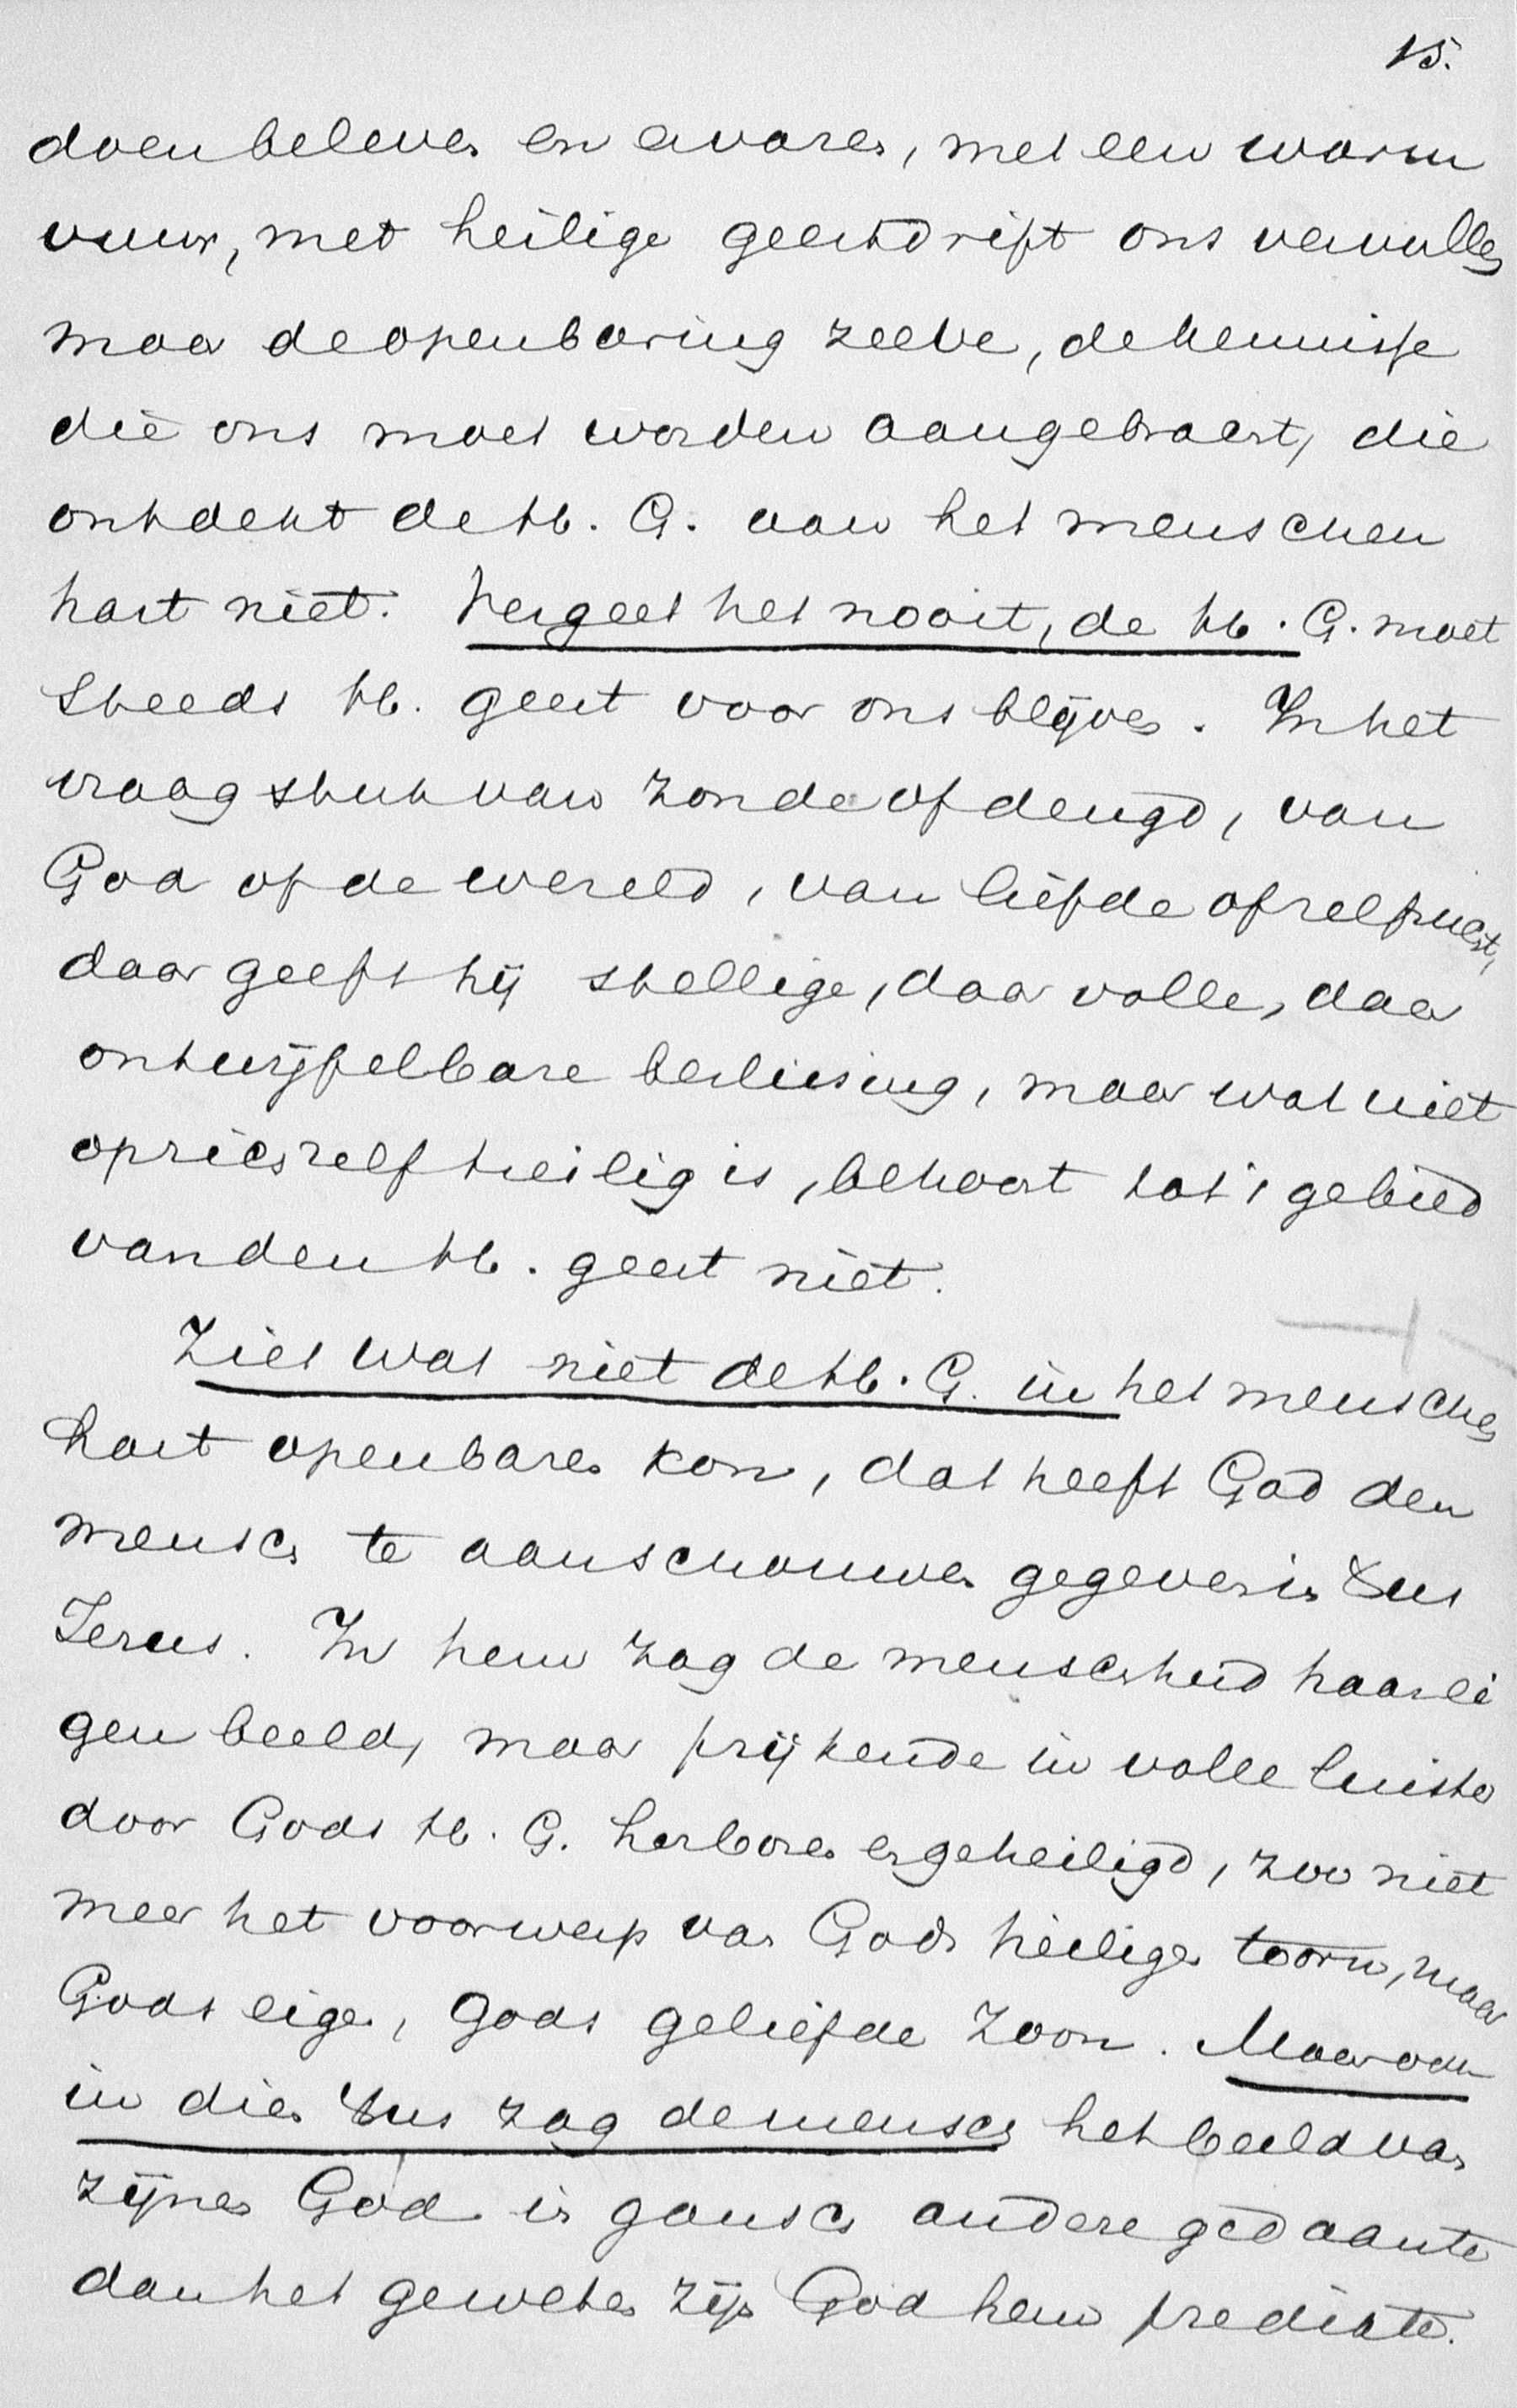 15.
doen beleven en ervaren, met een warm
vuur, met heilige geestdrift ons vervullen
maar de openbaring zelve, de kennisse
die ons moet worden aangebracht, die
ontdekt de H. G. aan het menschen
hart niet. Vergeet het nooit, de H. G. moet
steeds H. geest voor ons blijven. In het
vraagstuk van zonde of deugd, van
God of de wereld, van liefde of zelfzucht,
daar geeft hij stellige, daar volle, daar
ontwijfelbare beslissing, maar wat niet
op zich zelf heilig is, behoort tot 't gebied
van den H. geest niet.
Ziet wat niet de H. G. in het menschen
hart openbaren kon, dat heeft God den
mensch te aanschouwen gegeven in Xus
Jezus. In hem zag de menschheid haar ei
gen beeld, maar prijkende in volle luister
door Gods H. G. herboren en geheiligd, zoo niet
meer het voorwerp van Gods heiligen toorn, maar
Gods eigen, Gods geliefde zoon. Maar ook
in dien Xus zag de mensch het beeld van
zijnen God in gansch andere gedaante
dan het geweten zijn God hem predikte.